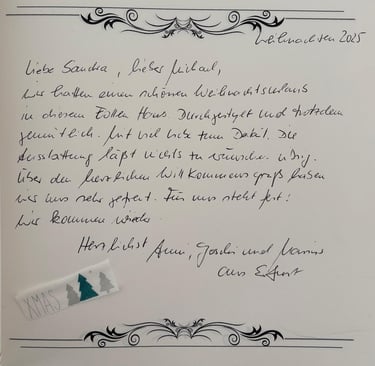 Weihnachten 2025
Liebe Sandra, lieber Michael,
wir hatten einen schönen Weihnachtsurlaub
in diesem tollen Haus. Durchgestylt und trotzdem
gemütlich. Mit viel Liebe zum Detail. Die
Ausstattung läßt nichts zu wünschen übrig.
Über den herzlichen Willkommensgruß haben
wir uns sehr gefreut. Für uns steht fest:
Wir kommen wieder.
Herzlichst und
aus Erfurt
XMAS